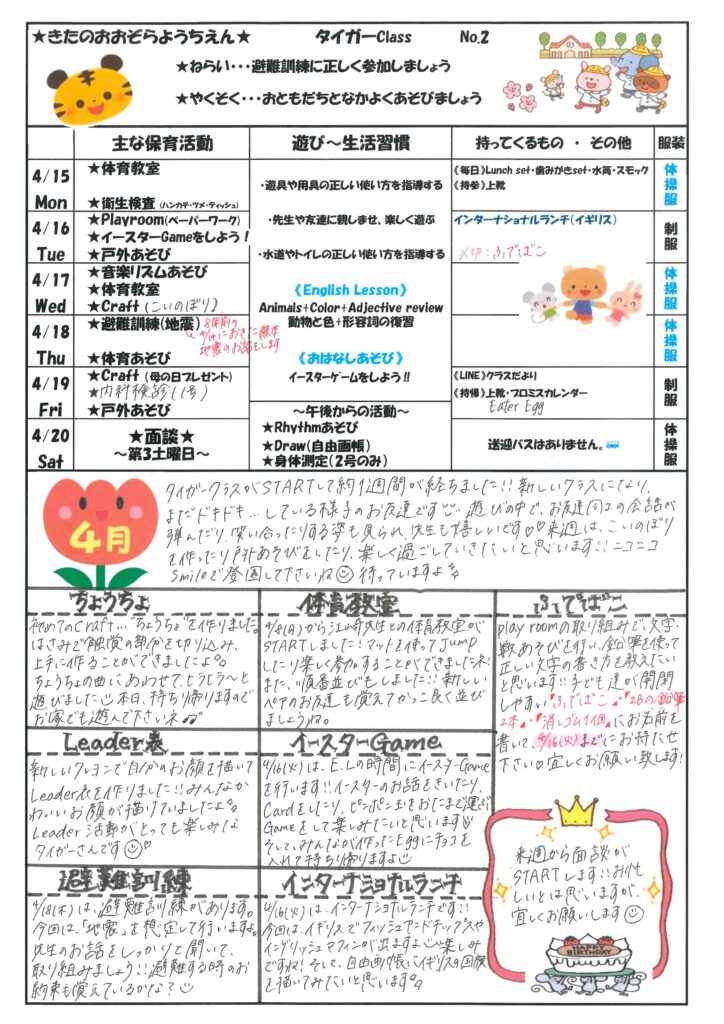 ★きたのおおぞらようちえん★ タイガーClass No.2
★ねらい・・・避難訓練に正しく参加しましょう
★やくそく・・・おともだちとなかよくあそびましょう
主な保育活動 遊び～生活習慣 持ってくるもの ・ その他 服装
4/15
Mon
★体育教室
★衛生検査（ハンカチ・ツメ・ティッシュ）
《毎日》Lunch set・歯みがきset・水筒・スモック
《持参》上靴
体操服
4/16
Tue
★Playroom(ペーパーワーク)
★イースターGameをしよう！
★戸外あそび
インターナショナルランチ(イギリス)
〆切：ふでばこ
制服
4/17
Wed
★音楽リズムあそび
★体育教室
★Craft（こいのぼり）
体操服
4/18
Thu
★避難訓練(地震)
8年前の
4/14におきた熊本
地震のお話もします
★体育あそび
体操服
4/19
Fri
★Craft（母の日プレゼント）
★内科検診（1号）
★戸外あそび
《LINE》クラスだより
《持帰》上靴・プロミスカレンダー
Eater Egg
制服
4/20
Sat
★面談★
～第3土曜日～
送迎バスはありません。
体操服
・遊具や用具の正しい使い方を指導する
・先生や友達に親しませ、楽しく遊ぶ
・水道やトイレの正しい使い方を指導する
《English Lesson》
Animals+Color+Adjective review
動物と色+形容詞の復習
《おはなしあそび》
イースターゲームをしよう!!
～午後からの活動～
★Rhythmあそび
★Draw(自由画帳)
★身体測定(2号のみ)
4月
タイガークラスがSTARTして約1週間が経ちました!!新しいクラスになり、
まだドキドキ…している様子のお友達です 遊びの中で、お友達同士の会話が
弾んだり、笑い合ったりする姿も見られ、先生も嬉しいです♡♡来週は、こいのぼり
を作ったり戸外あそびをしたり、楽しく過ごしていきたいと思います!!ニコニコ
Smileで登園して下さいね 待っていますよ
ちょうちょ
初めてのCraft…"ちょうちょ"を作りました。
はさみで触覚の部分を切り込み、
上手に作ることができましたよ。
ちょうちょの曲にあわせて、ヒラヒラ～と
遊びました 本日、持ち帰りますので
お家でも遊んで下さいネ♪
体育教室
4/8(月)から江崎先生との体育教室が
STARTしました!マットを使ってJump
したり楽しく参加することができましたネ
また、"順番並び"もしました!!新しい
ペアのお友達も覚えてかっこ良く並び
ましょうね。
ふでばこ
play roomの取り組みで、文字・
数あそびを行い、鉛筆を使って
正しい文字の書き方を教えたい
と思います!!子ども達が開閉
しやすい"ふでばこ""2Bの鉛筆
2本""消しゴム1個"にお名前を
書いて、4/16(火)までにお持たせ
下さい 宜しくお願い致します!
Leader表
新しいクレヨンで自分のお顔を描いて
Leader表を作りました!!みんなか
わいいお顔が描けていましたよ
Leader活動がとっても楽しみな
タイガーさんです♡
イースターGame
4/16(火)は、E.Lの時間にイースターGame
を行います!!イースターのお話をきいたり、
Cardをしたり、ピンポン玉をおたまで運ぶ
Gameをして楽しみたいと思います
そして、みんなが作ったEggにチョコを
入れて持ち帰りますよ
避難訓練
4/18(木)は、避難訓練があります。
今回は、「地震」を想定して行いますよ。
先生のお話をしっかりと聞いて、
取り組みましょう!!避難する時のお
約束も覚えているかな？
インターナショナルランチ
4/16(火)は、インターナショナルランチです!!
今回は、イギリスでフィッシュアンドチップスや
イングリッシュマフィンが出ますよ 楽しみ
ですね!そして、自由画帳にイギリスの国旗
を描いてみたいと思います
来週から面談が
STARTします!!お忙し
いとは思いますが、
宜しくお願いします
HAPPY
BIRTHDAY